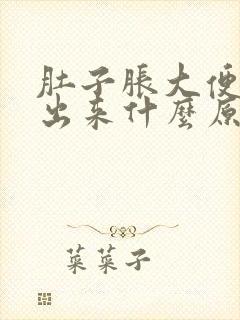 肚子脹大便
出来什麼原
菜菜子